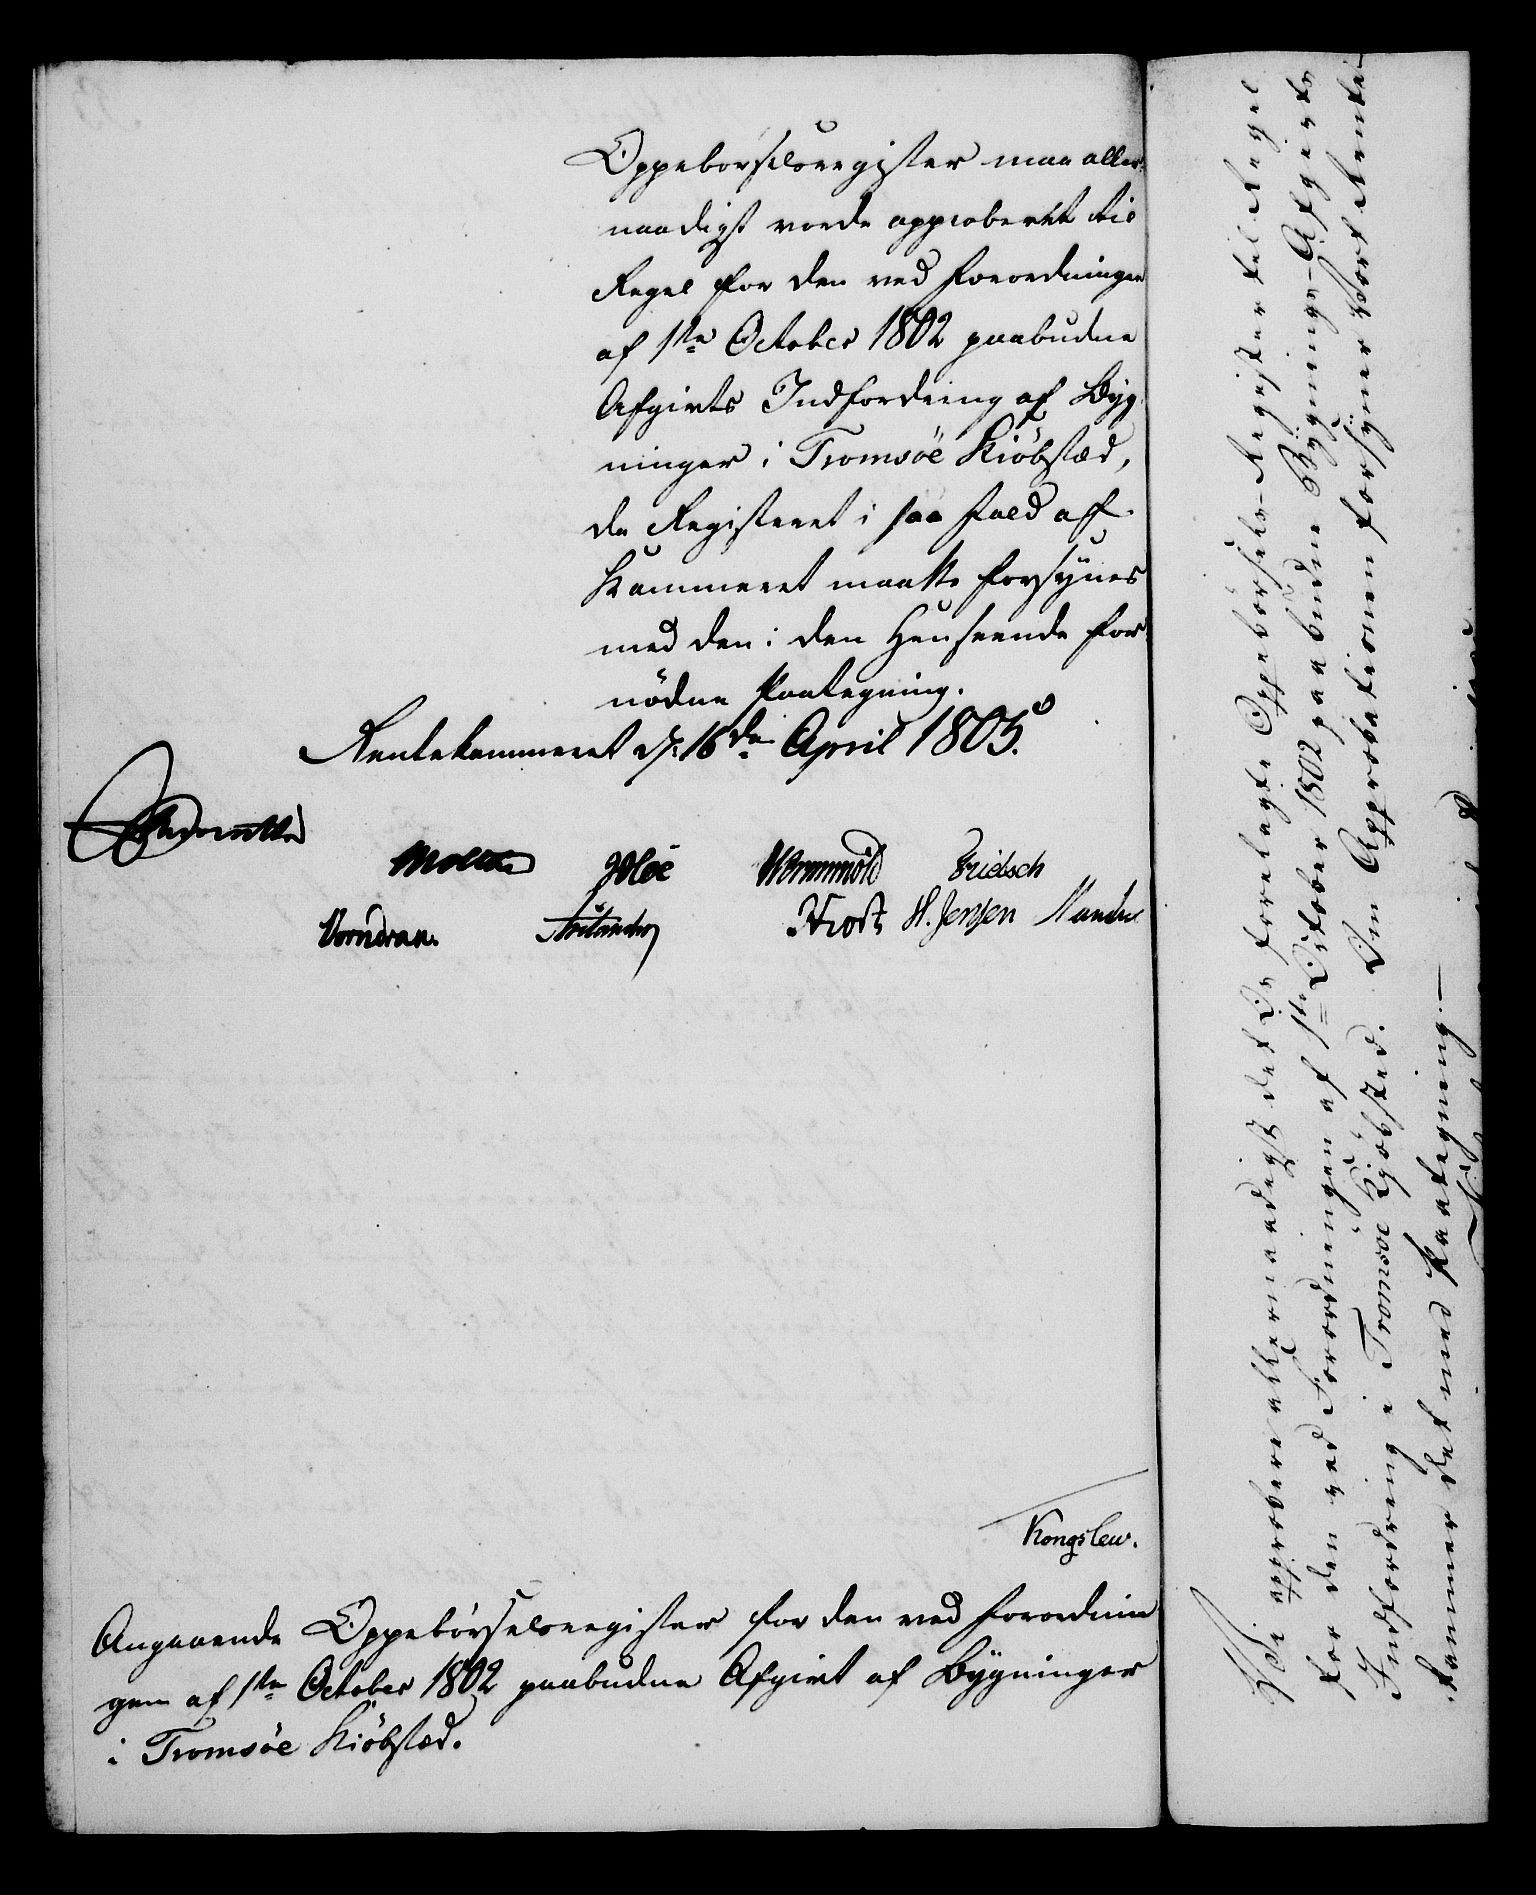 Oppebörselsregister maa aller-
naadigst vorde approberet til
Regel for den ved Forordningen
af 1ste October 1802 paabudne
Afgivts Indfordring af Byg-
ninger i Tromsöe Kiöbstæd,
da Registeret i saa Fald af
Kammeret maatte forsynes
med den i den Henseende for-
nödne Paategning.
Rentekammeret d: 16de April 1805.
Moltke Wormskiold Fridsch
Vorndran. Frost H. Jensen
Kongslew.
Angaaende Oppebörselsregister for den ved Forordnin-
gen af 1ste October 1802 paabudne Afgivt af Bygninger
i Tromsöe Kiöbstæd.
Vi approbere allernaadigst det Os forelagte Oppebørsels-Register til Regel
for den ved Forordningen af 1ste October 1802 paabudne Bygnings-Afgivts
Indfordring i Tromsøe Kjøbsted. Om Approbationen forsyner Vort Rente-
kammer det med Paategning.—